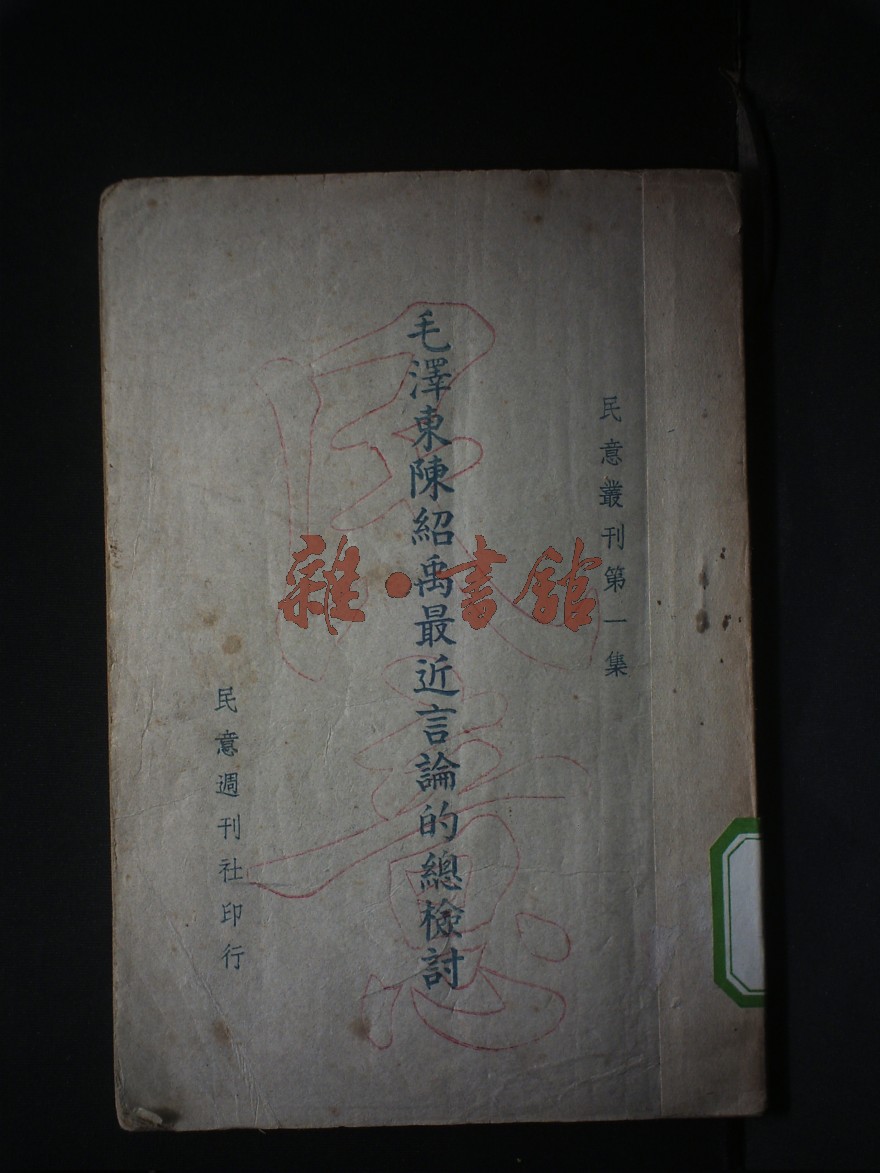 民意叢刊第一集
毛澤東陳紹禹最近言論的總檢討
民意週刊社印行
民意
雜·書館